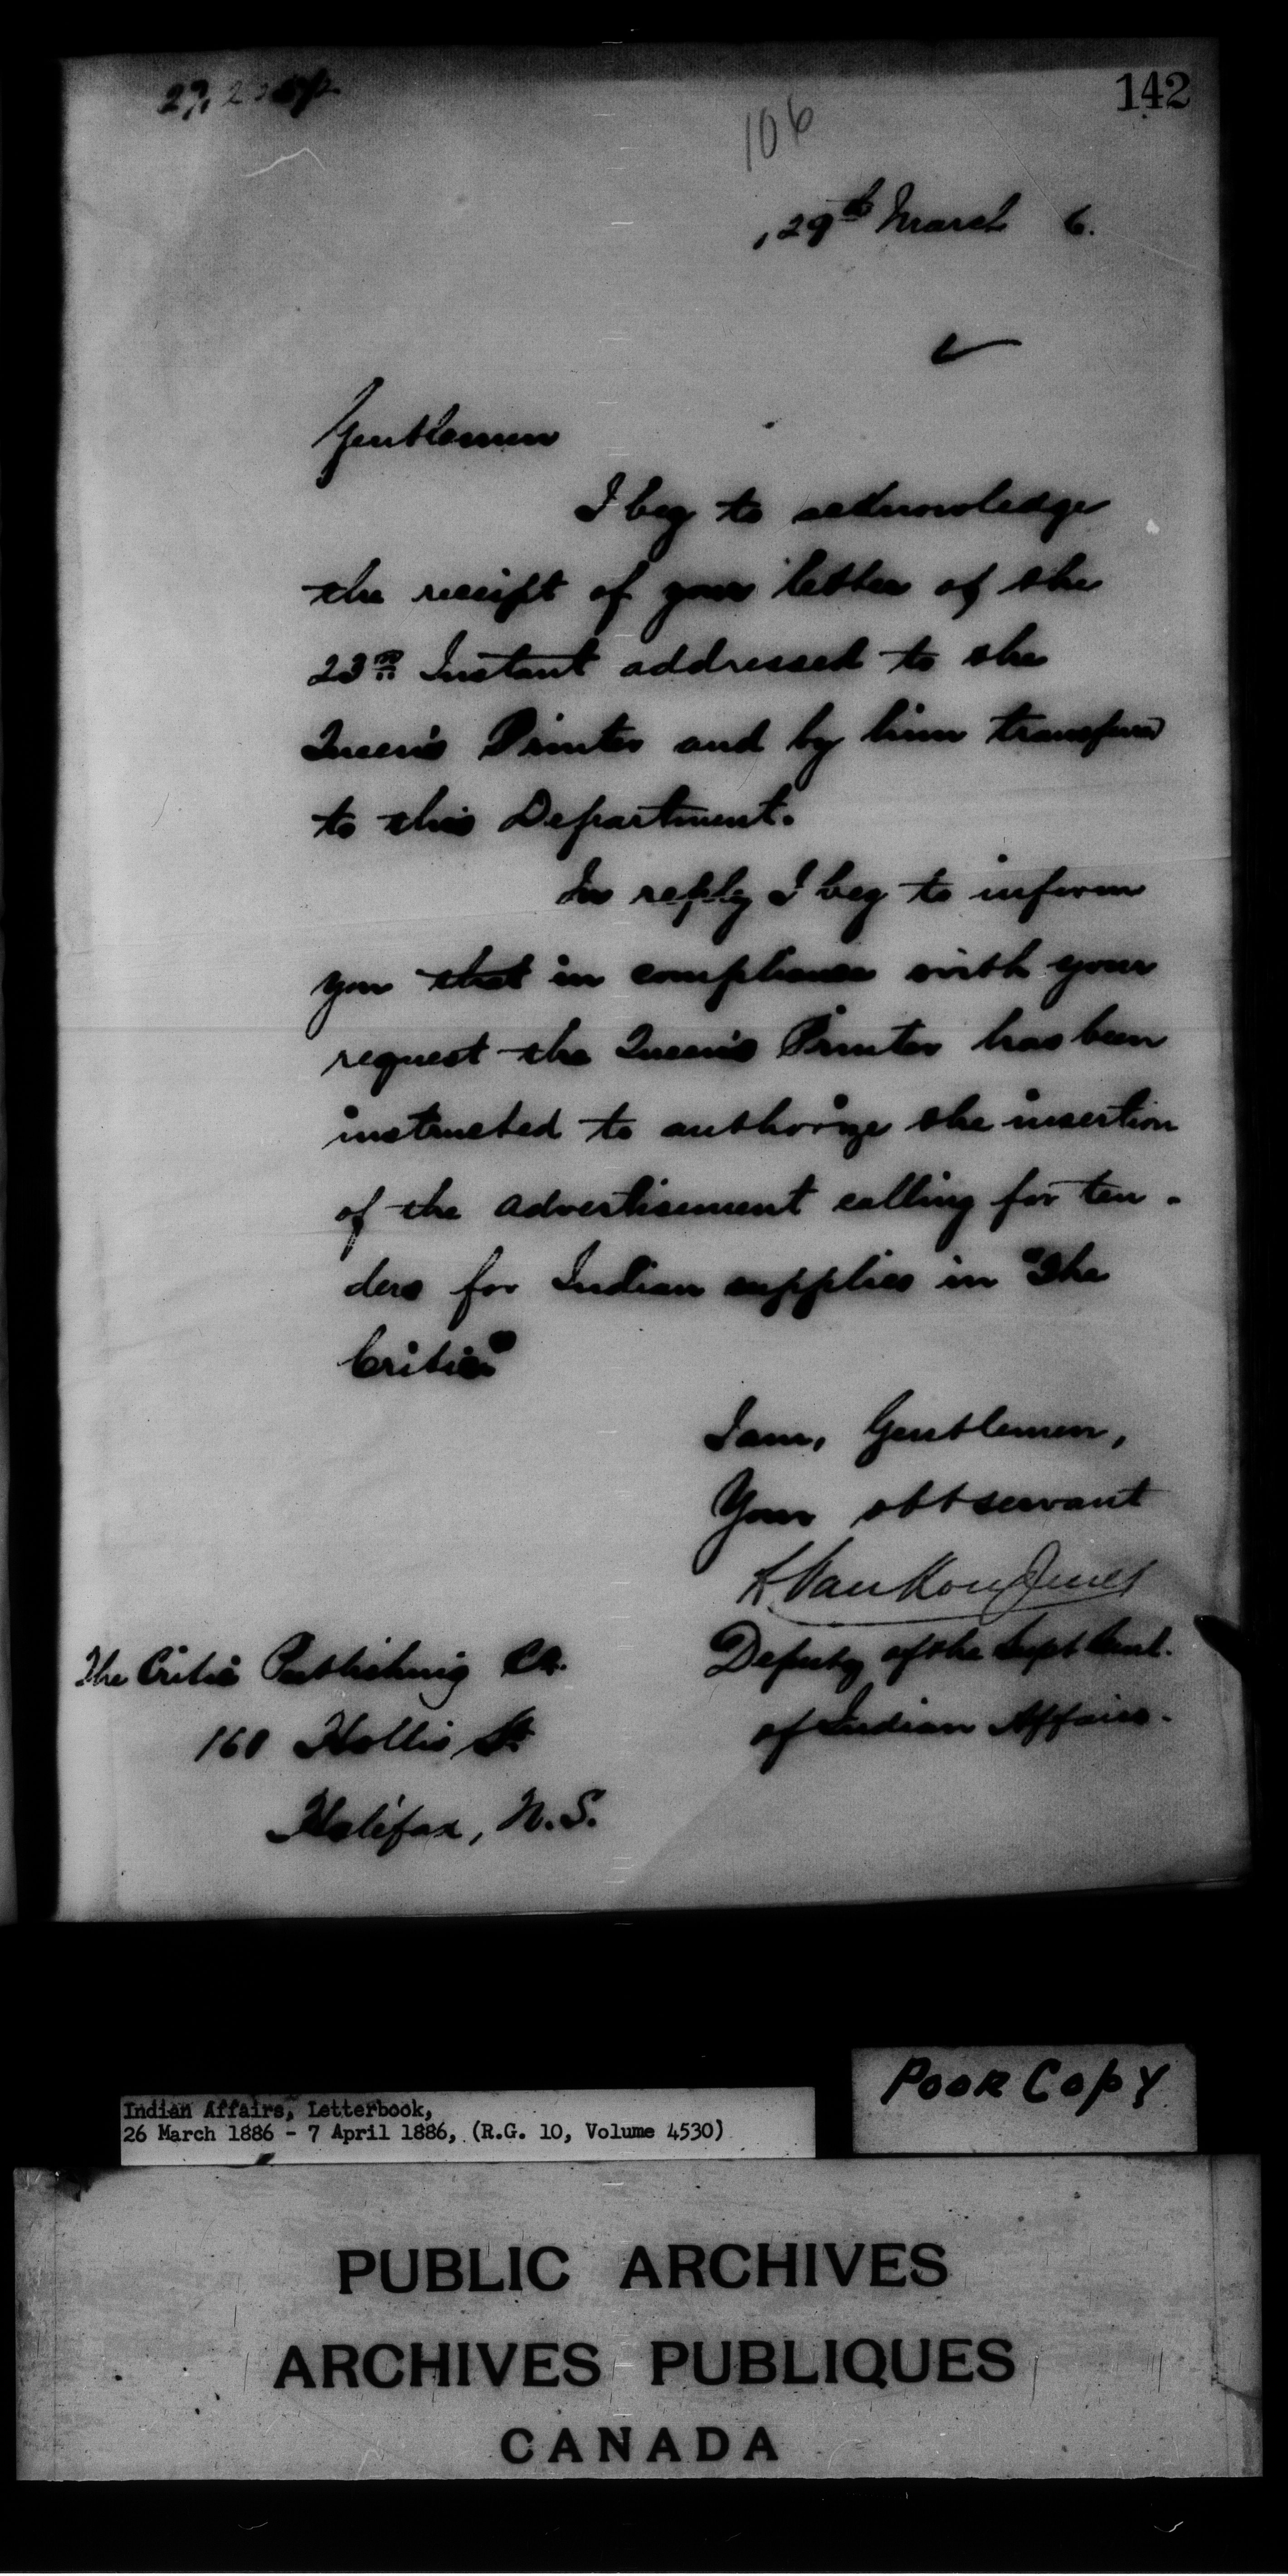 142
106
29th March 6.
Gentlemen
I beg to acknowledge
the receipt of your letter of the
23rd Instant addressed to the
Queen's Printer and by him transferred
to this Department.
In reply I beg to inform
you that in compliance with your
request the Queen's Printer has been
instructed to authorize the insertion
of the advertisement calling for ten-
ders for Indian supplies in "The
Critic"
I am, Gentlemen,
Your obt servant
L Vankoughnet
Deputy of the Supt Genl.
of Indian Affairs.
The Critic Publishing Co.
160 Hollis St
Halifax, N.S.
Poor Copy
Indian Affairs, Letterbook,
26 March 1886 - 7 April 1886, (R.G. 10, Volume 4530)
PUBLIC ARCHIVES
ARCHIVES PUBLIQUES
CANADA